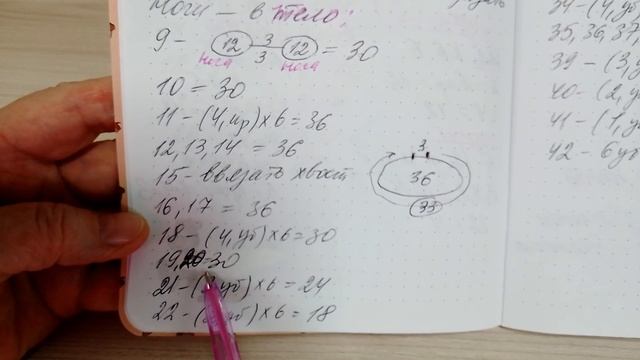 Ноги – в тело:
9 – 12 3 3 12 = 30
нога нога
10 = 30
11 – (4, пр) × 6 = 36
12, 13, 14 = 36
15 – ввязать хвост
16, 17 = 36
18 – (4, уб) × 6 = 30
19, 20 = 30
21 – (3 уб) × 6 = 24
22 – ( уб) × 6 = 18
3
36
33
34 – (4, у
35, 36, 37
39 – (3, у
40 – (2, у
41 – (1, у
42 – 6 уб